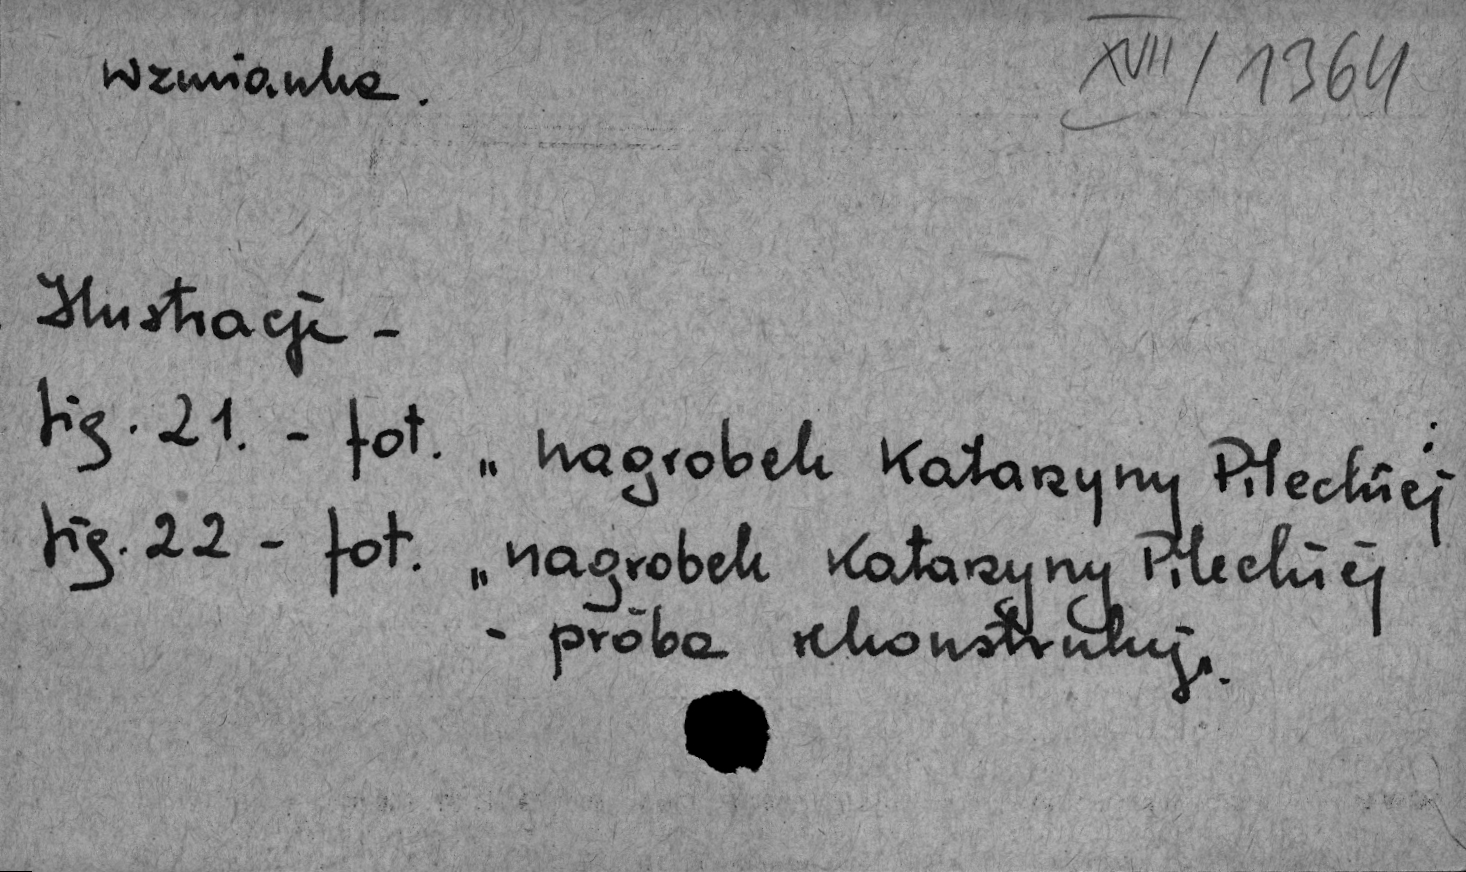 XVII/1364
wzmianka.
Ilustracje -
fig. 21. - fot. „nagrobek Katarzyny Pileckiej"
fig. 22 - fot. „nagrobek Katarzyny Pileckiej
- próba rekonstrukcji".